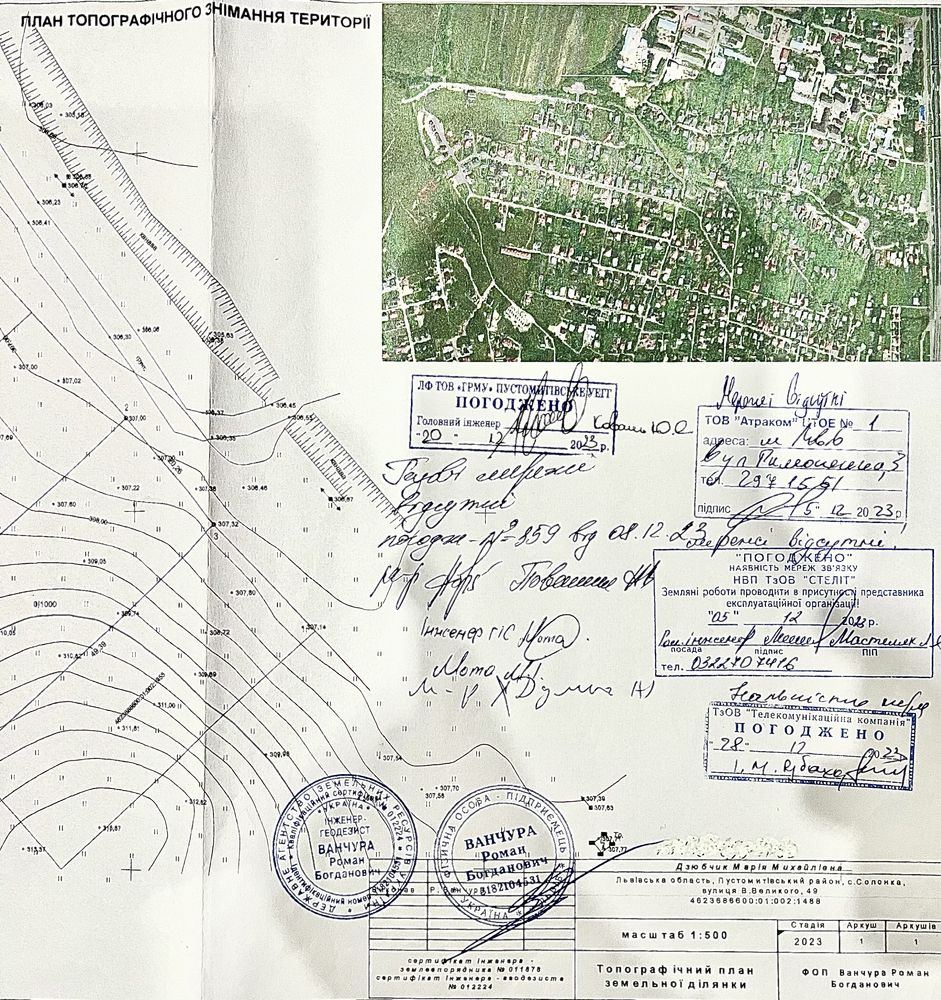 ПЛАН ТОПОГРАФІЧНОГО ЗНІМАННЯ ТЕРИТОРІЇ
306,03
306,23
306,41
306,30
306,08
306,63
307,00
307,02
307,00
306,37
306,45
306,35
канава
307,22
307,36
306,46
306,67
307,60
308,00
307,32
3
309,05
307,80
0,1000
309,74
308,72
307,14
310,62
49,39
309,89
4623686600:01:002:1655
311,06
311,81
309,98
307,54
312,62
307,70
307,58
307,39
307,63
313,87
313,57
307,77
ЛФ ТОВ «ГРМУ» ПУСТОМИТІВСЬКЕ УЕГГ
ПОГОДЖЕНО
Головний інженер Коваль Ю.С
"20" 12 2023 р.
Газові мережі
відсутні
погодж-№359 від 08.12.23
м-р
Інженер ГІС Мота
Мота
м-р
Мережі відсутні
ТОВ "Атраком" ЦТОЕ № 1
адреса: м Львів
вул Тимошенка, 3
тел. 297 15 51
підпис 15 12 2023 р
Мережі відсутні!
"ПОГОДЖЕНО"
НАЯВНІСТЬ МЕРЕЖ ЗВ'ЯЗКУ
НВП ТзОВ "СТЕЛІТ"
Земляні роботи проводити в присутності представника
експлуатаційної організації!
"05" 12 2023 р.
посада підпис ПІП
тел. 0322707416
ТзОВ "Телекомунікаційна компанія"
ПОГОДЖЕНО
"28" 12 2023
ДЕРЖАВНЕ АГЕНТСТВО ЗЕМЕЛЬНИХ РЕСУРСІВ УКРАЇНИ
Кваліфікаційний сертифікат № 012224
* УКРАЇНА *
ІНЖЕНЕР-
ГЕОДЕЗИСТ
ВАНЧУРА
Роман
Богданович
Ідентифікаційний номер 3182104531
ФІЗИЧНА ОСОБА - ПІДПРИЄМЕЦЬ
ВАНЧУРА
Роман
Богданович
3182104531
* УКРАЇНА *
Дзюбчик Марія Михайлівна
Львівська область, Пустомитівський район, с.Солонка,
вулиця В.Великого, 49
4623686600:01:002:1488
масштаб 1:500
Стадія Аркуш Аркушів
2023 1 1
сертифікат Інженера -
землевпорядника № 011878
сертифікат Інженера - геодезиста
№ 012224
Топографічний план
земельної ділянки
ФОП Ванчура Роман
Богданович